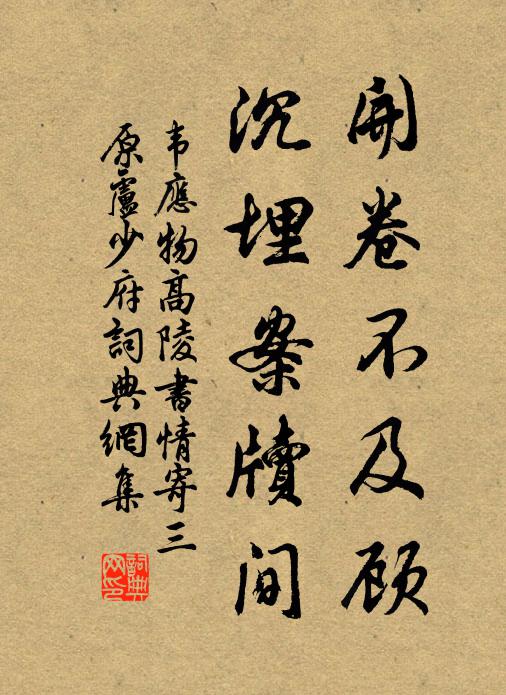 開卷不及顧
沉埋案牘間
韦應物高陵書情寄三
原盧少府詞典網集
詞典
网印